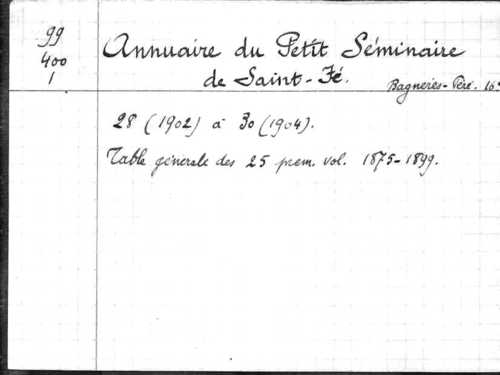 99
400
1
Annuaire du Petit Séminaire
de Saint-Fé.
Bagnères-Péré. 16°
28 (1902) à 30 (1904).
Table générale des 25 prem. vol. 1875-1899.